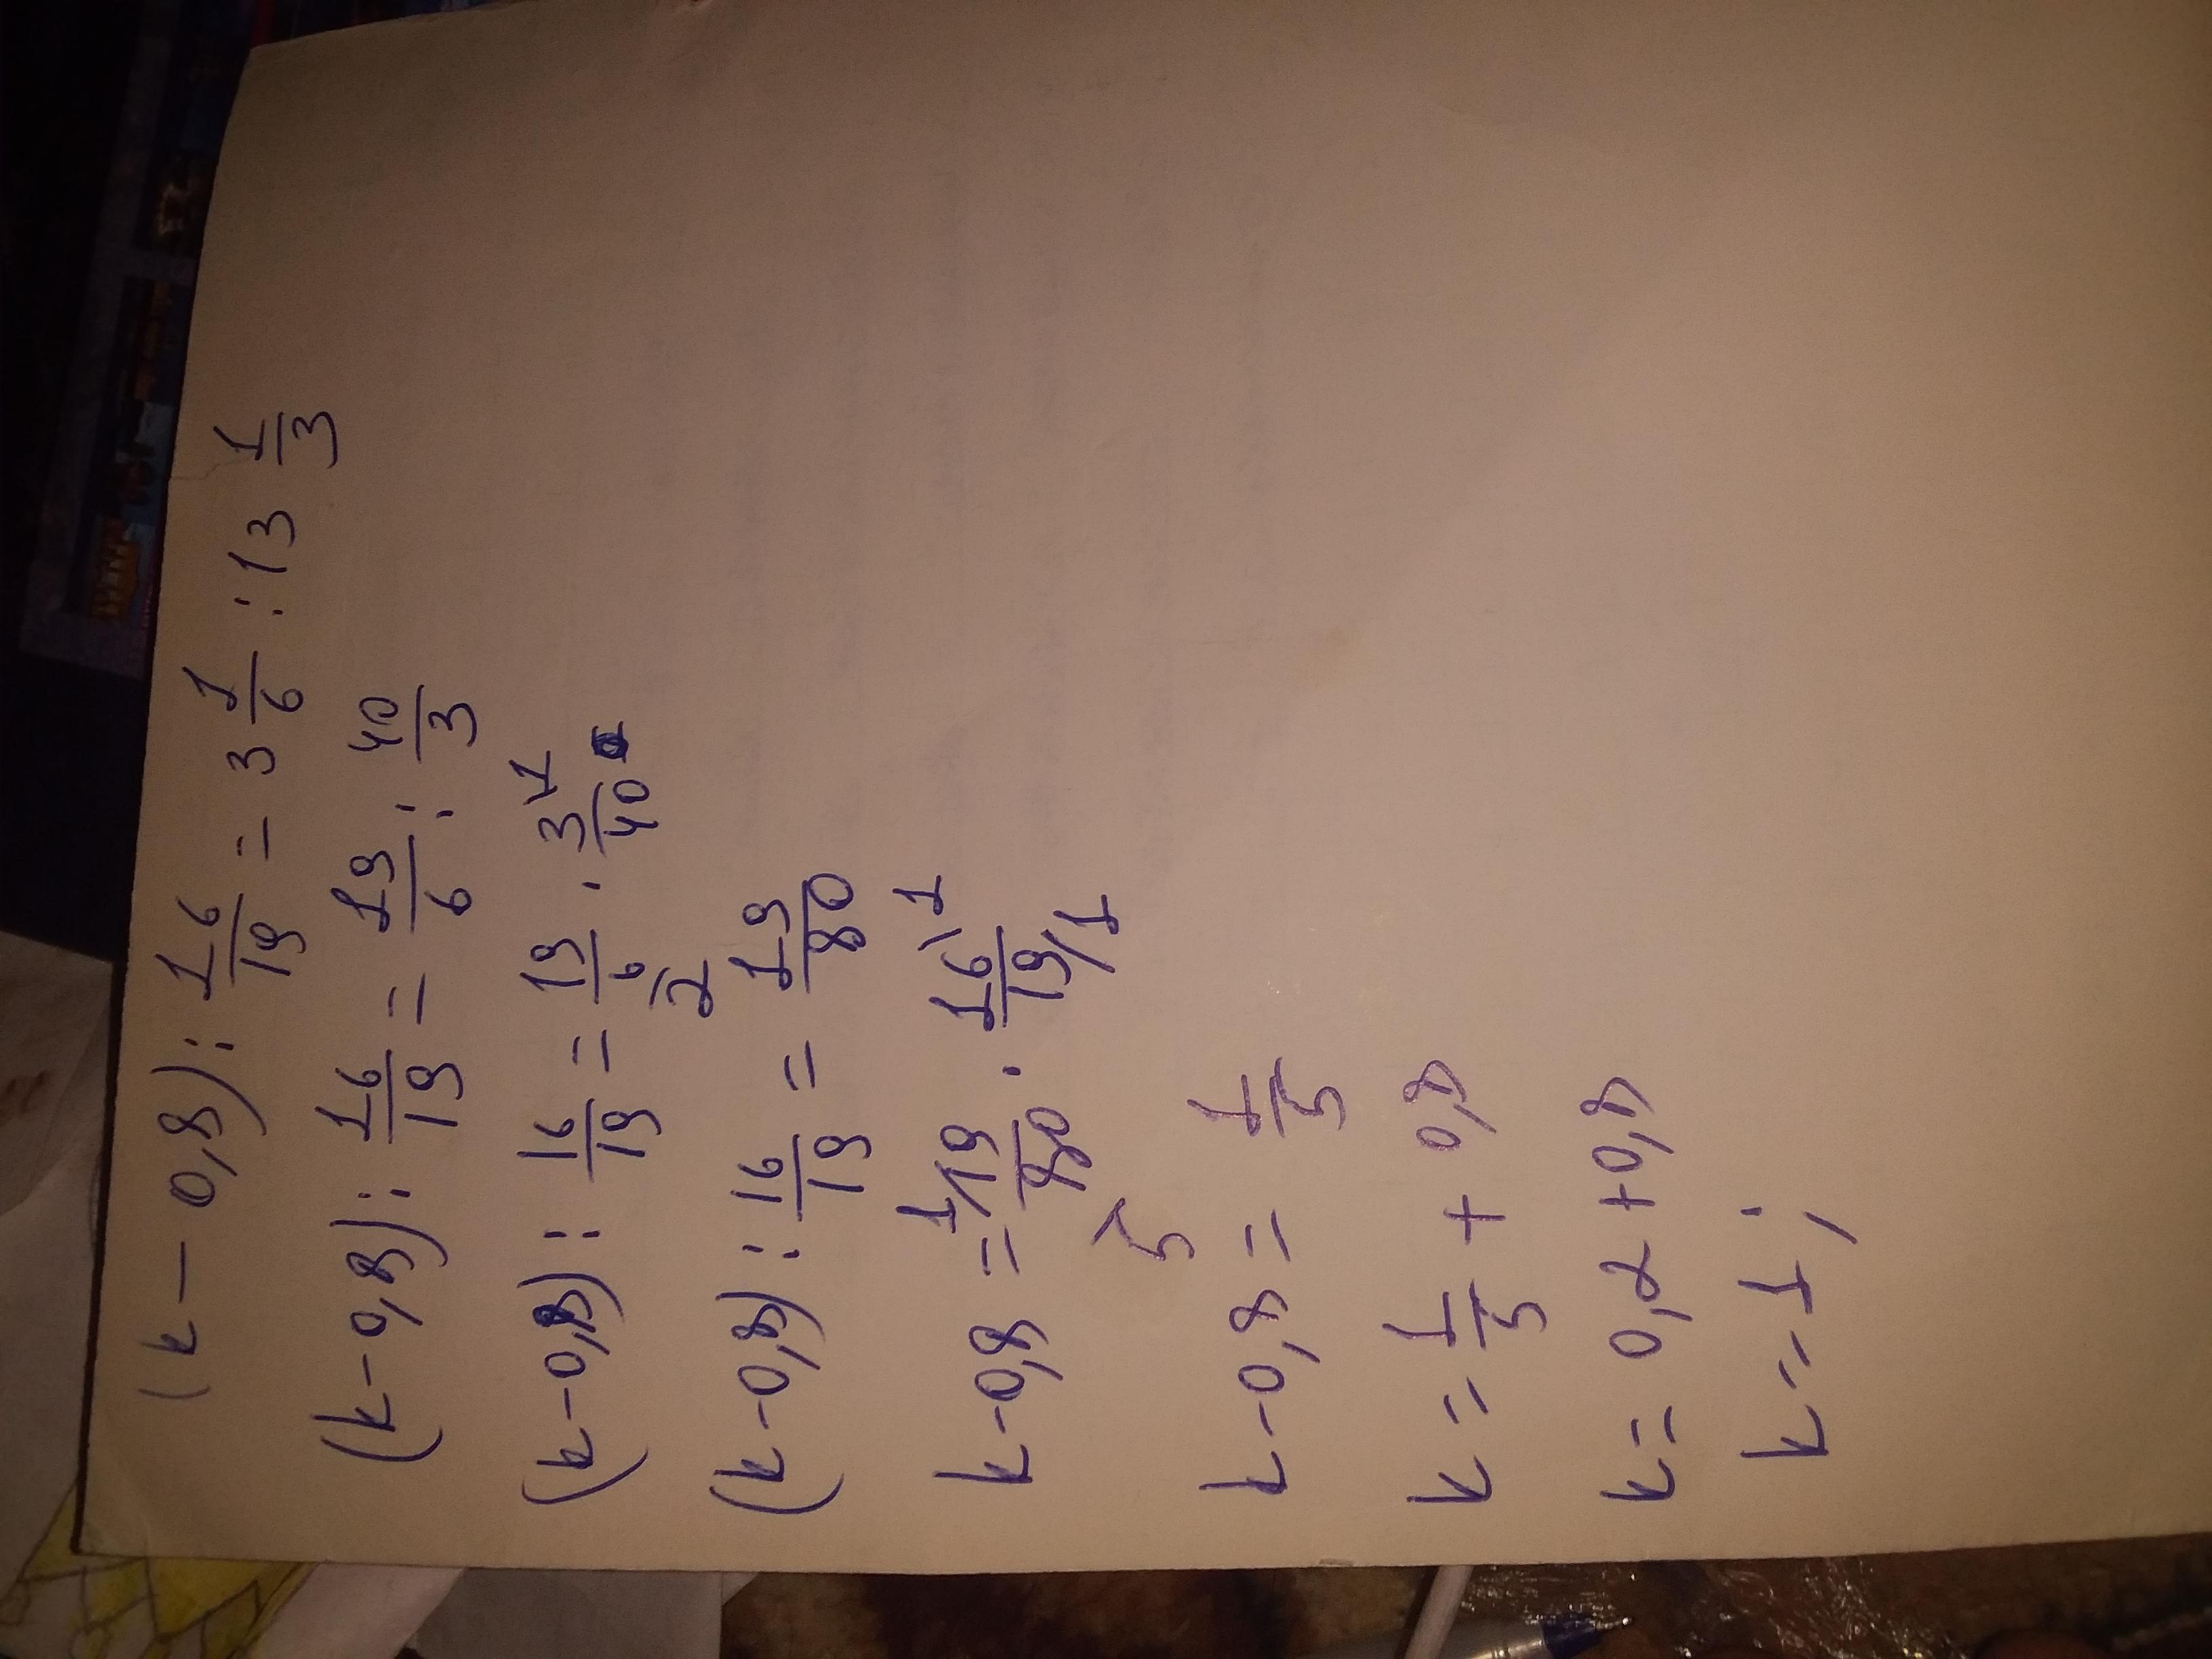 (k - 0,8) : 16/19 = 3 1/6 : 13 1/3
(k - 0,8) : 16/19 = 19/6 : 40/3
(k - 0,8) : 16/19 = 19/6 2 · 3 1/40
(k - 0,8) : 16/19 = 19/80
k - 0,8 = 1 19/80 5 · 16 1/19 1
k - 0,8 = 1/5
k = 1/5 + 0,8
k = 0,2 + 0,8
k = 1;